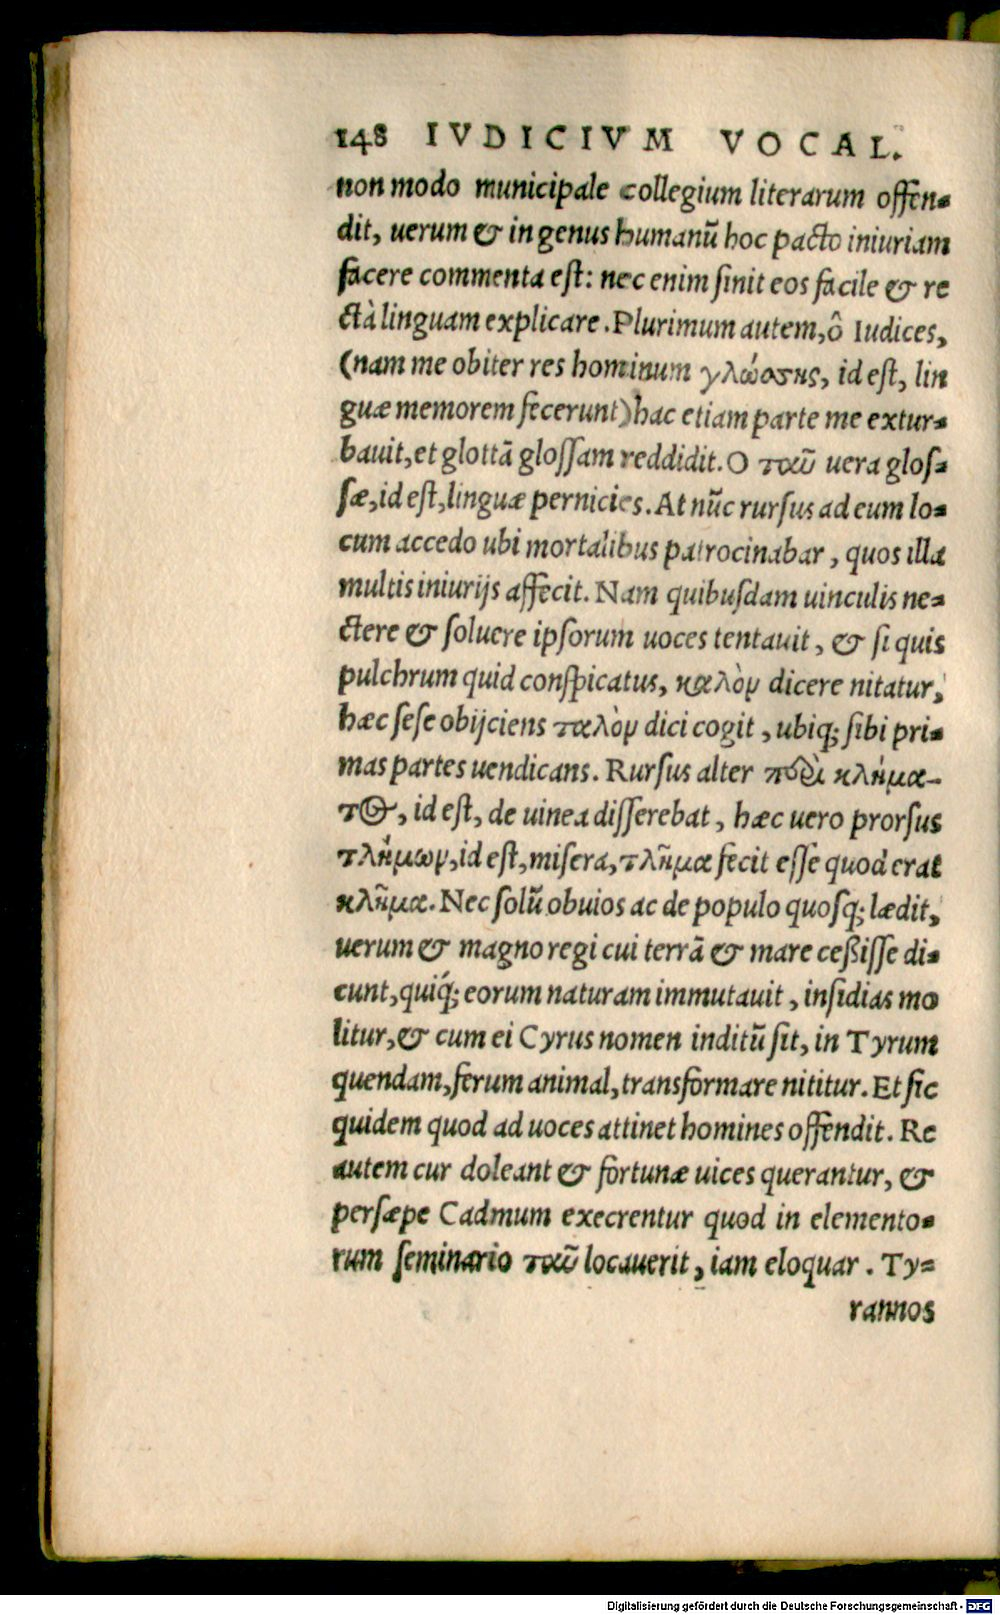 148 IVDICIVM VOCAL.
non modo municipale collegium literarum offen-
dit, uerum & in genus humanũ hoc pacto iniuriam
facere commenta est: nec enim sinit eos facile & re
ctà linguam explicare. Plurimum autem, ô Iudices,
(nam me obiter res hominum γλώσσης, id est, lin
guæ memorem fecerunt) hac etiam parte me extur-
bauit, et glottã glossam reddidit. O ταῦ uera glos-
sæ, id est, linguæ pernicies. At nũc rursus ad eum lo-
cum accedo ubi mortalibus patrocinabar, quos illa
multis iniurijs affecit. Nam quibusdam uinculis ne-
ctere & soluere ipsorum uoces tentauit, & si quis
pulchrum quid conspicatus, καλὸν dicere nitatur,
hæc sese obijciens ταλὸν dici cogit, ubiq; sibi pri-
mas partes uendicans. Rursus alter περὶ κλήμα-
τος, id est, de uinea disserebat, hæc uero prorsus
τλήμων, id est, misera, τλῆμα fecit esse quod erat
κλῆμα. Nec solũ obuios ac de populo quosq; lædit,
uerum & magno regi cui terrã & mare ceßisse di-
cunt, quiq́; eorum naturam immutauit, insidias mo
litur, & cum ei Cyrus nomen inditũ sit, in Tyrum
quendam, ferum animal, transformare nititur. Et sic
quidem quod ad uoces attinet homines offendit. Re
autem cur doleant & fortunæ uices querantur, &
persæpe Cadmum execrentur quod in elemento-
rum seminario ταῦ locauerit, iam eloquar. Ty-
rannos
Digitalisierung gefördert durch die Deutsche Forschungsgemeinschaft - DFG